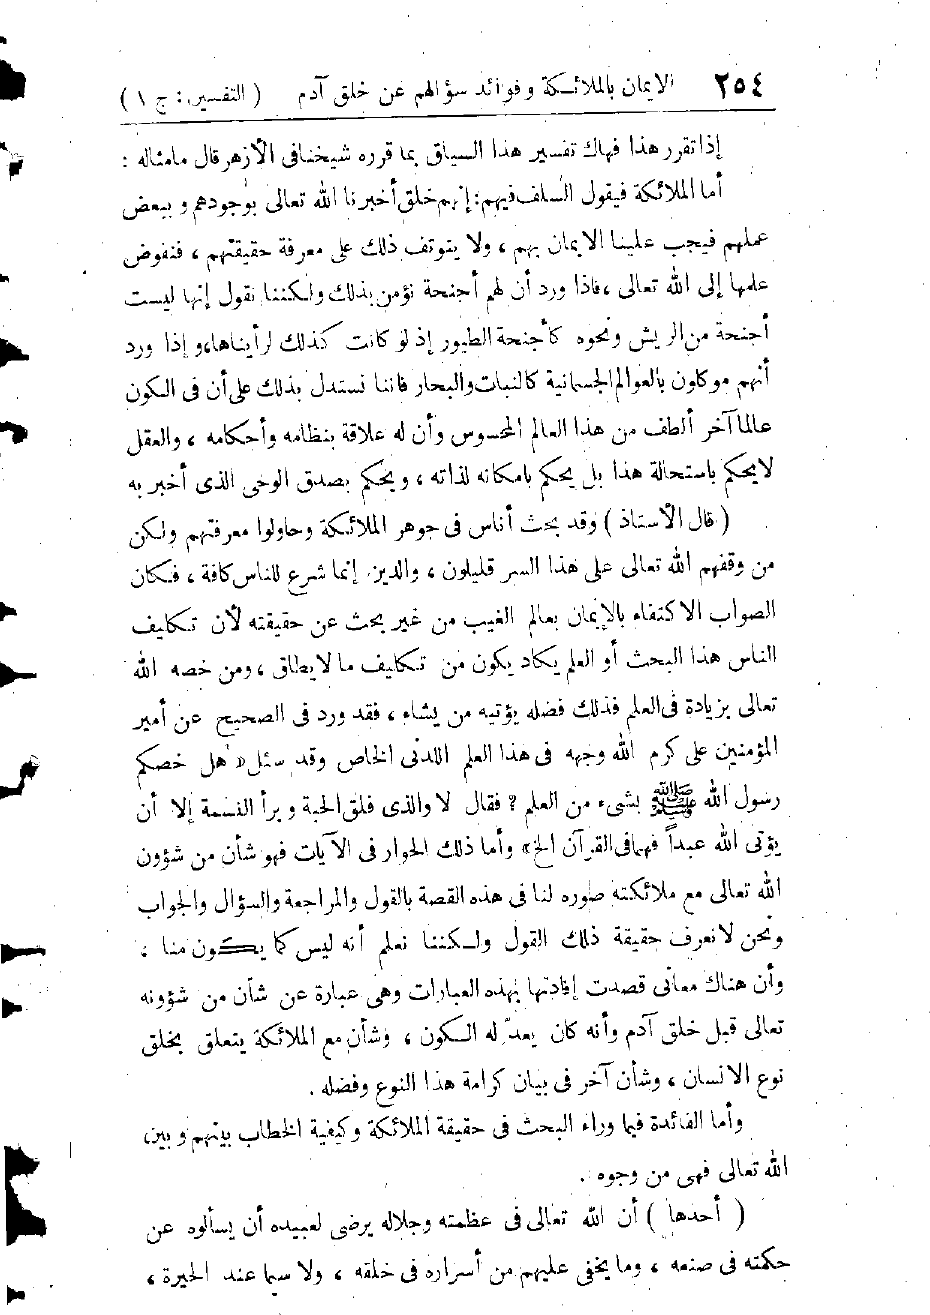 ٢٥٤ الايمان بالملائكة وفوائد سؤالهم عن خلق آدم ( التفسير : ج ١ )
إذا تقرر هذا فهاك تفسير هذا السياق بما قرره شيخنا فى الأزهر قال مامثاله :
أما الملائكة فيقول السلف فيهم : إنهم خلق أخبرنا الله تعالى بوجودهم وببعض
عملهم فيجب علينا الايمان بهم ، ولا يتوقف ذلك على معرفة حقيقتهم ، فنفوض
علمها إلى الله تعالى ، فاذا ورد أن لهم أجنحة نؤمن بذلك ولكننا نقول إنها ليست
أجنحة من الريش ونحوه كأجنحة الطيور إذ لو كانت كذلك لرأيناها، وإذا ورد
أنهم موكلون بالعوالم الجسمانية كالنبات والبحار فاننا نستدل بذلك على أن فى الكون
عالما آخر ألطف من هذا العالم المحسوس وأن له علاقة بنظامه وأحكامه ، والعقل
لايحكم باستحالة هذا بل يحكم بامكانه لذاته ، ويحكم بصدق الوحى الذى أخبر به
( قال الأستاذ ) وقد بحث أناس فى جوهر الملائكة وحاولوا معرفتهم ولكن
من وقفهم الله تعالى على هذا السر قليلون ، والدين إنما شرع للناس كافة ، فكان
الصواب الاكتفاء بالإيمان بعالم الغيب من غير بحث عن حقيقته لأن تكليف
الناس هذا البحث أو العلم يكاد يكون من تكليف ما لا يطاق ، ومن خصه الله
تعالى بزيادة فى العلم فذلك فضله يؤتيه من يشاء ، فقد ورد فى الصحيح عن أمير
المؤمنين على كرم الله وجهه فى هذا العلم اللدنى الخاص وقد سئل « هل خصكم
رسول الله ﷺ بشىء من العلم ? فقال لا والذى فلق الحبة وبرأ النسمة إلا أن
يؤتى الله عبداً فهما فى القرآن الخ » وأما ذلك الحوار فى الآيات فهو شأن من شؤون
الله تعالى مع ملائكته صوره لنا فى هذه القصة بالقول والمراجعة والسؤال والجواب
ونحن لا نعرف حقيقة ذلك القول ولكننا نعلم أنه ليس كما يكون منا :
وأن هناك معانى قصدت إفادتها بهذه العبارات وهى عبارة عن شأن من شؤونه
تعالى قبل خلق آدم وأنه كان يعدّ له الكون ، وشأن مع الملائكة يتعلق بخلق
نوع الانسان ، وشأن آخر فى بيان كرامة هذا النوع وفضله .
وأما الفائدة فيما وراء البحث فى حقيقة الملائكة وكيفية الخطاب بينهم وبين
الله تعالى فهى من وجوه .
( أحدها ) أن الله تعالى فى عظمته وجلاله يرضى لعبيده أن يسألوه عن
حكمته فى صنعه ، وما يخفى عليهم من أسراره فى خلقه ، ولا سيما عند الحيرة ،